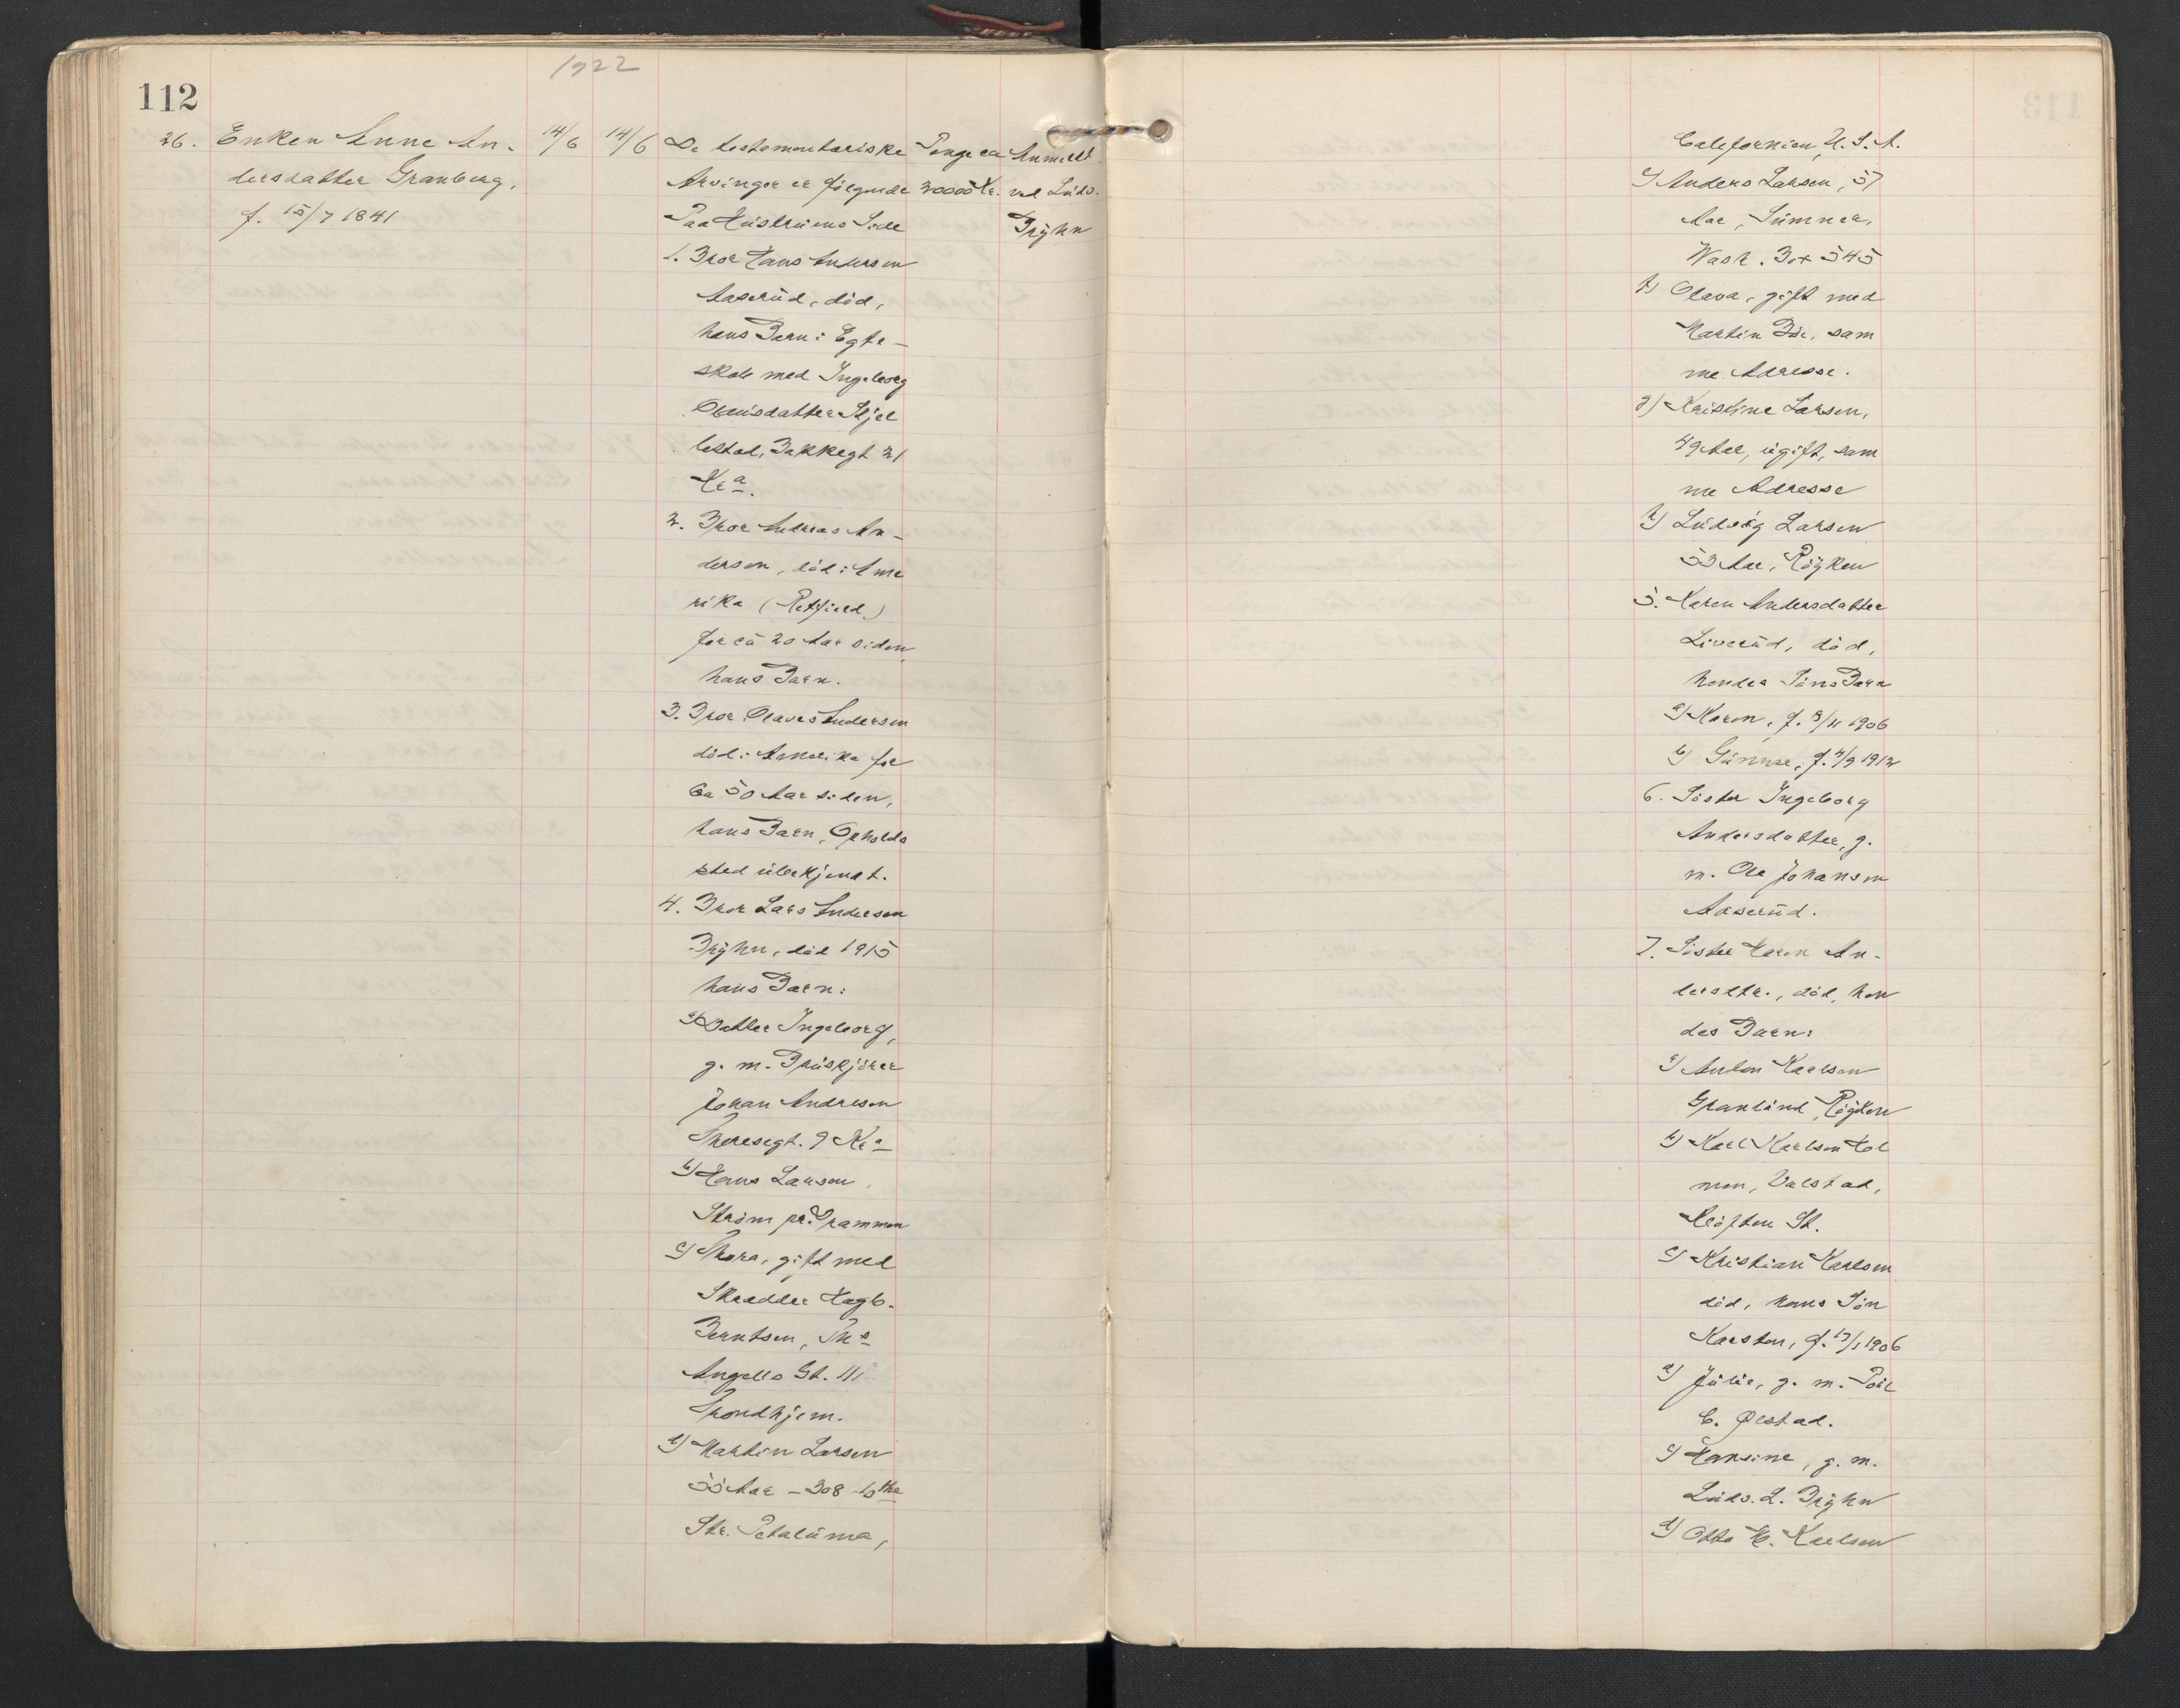 1922
112
26. Enken Anne An-
dersdatter Granberg,
f. 15/7 1841
14/6 14/6
De testamentariske
Arvinger er følgende
Paa Hustruens Side
1. Bror Hans Andersen
Aaserud, død,
hans Barn i Egte-
skab med Ingeborg
Olausdatter Skjel
lestad, Bakkegt 21
Kr.a
2. Bror Andreas An-
dersen, död i Ame
rika (Retfield)
for ca 20 Aar siden,
hans Barn.
3. Bror Olaves Andersen
död i Amerika for
Ca 50 Aar siden,
hans Barn, Opholds
sted übekjendt.
4. Bror Lars Andersen
Bryhn, död 1915
hans Barn:
a) Datter Ingeborg,
g. m. Bruskjører
Johan Andresen
Theresegt. 9 Kr.a
b) Hans Larsen,
Strøm pr. Drammen
c) Thora, gift med
Skrædder Hagb.
Berntsen, Ths
Angells Gt. 11
Trondhjem.
d) Martin Larsen
55 Aar - 308 - 10the
Str. Petaluma,
Penge ca
30000 Kr.
Anmeldt
ved Ludv.
Bryhn
Californien, U.S.A.
e) Anders Larsen, 57
Aar, Sumner,
Wash. Box 545
f) Olava, gift med
Martin Bøe, sam
me Adresse.
g) Kristine Larsen,
49 Aar, ugift, sam
me Adresse
h) Ludvig Larsen
53 Aar, Røyken
5. Karen Andersdatter
Liverud, død,
hendes Søns Barn
a) Karen, f. 9/11 1906
b) Gunnar, f. 4/9 1912
6. Søster Ingeborg
Andersdatter, g.
m. Ole Johansen
Aaserud.
7. Søster Karen An-
dersdtr., død, hen
des Barn:
a) Anton Karlsen
Granlund, Røyken
b) Karl Karlsen Hol
men, Valstad,
Kløften St.
c) Kristian Karlsen
død, hans Søn
Karsten, f. 13/1 1906
d) Julie, g. m. Poul
C. Ølstad.
e) Hansine, g. m.
Ludv. L. Bryhn
d) Otto K. Karlsen